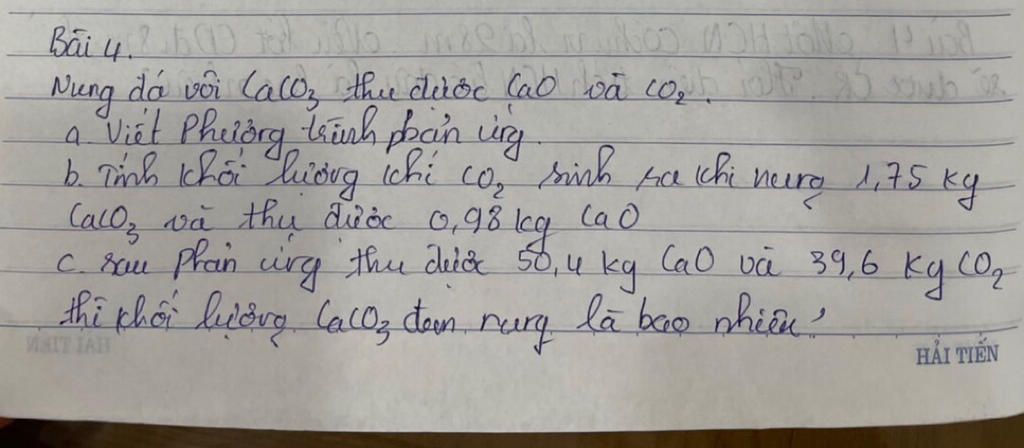 Bài 4.
Nung đá vôi CaCO3 thu được CaO và CO2.
a. Viết Phương trình phản ứng.
b. Tính khối lượng khí CO2 sinh ra khi nung 1,75 kg
CaCO3 và thu được 0,98 kg CaO
c. sau phản ứng thu được 50,4 kg CaO và 39,6 kg CO2
thì khối lượng CaCO3 đem nung là bao nhiêu?
HẢI TIẾN